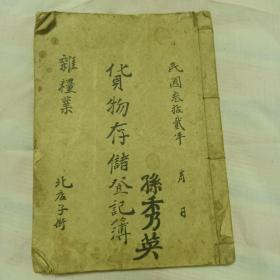 民國叁拾貳年 月 日
孫秀英
貨物存儲登記簿
雜糧業
北店子街